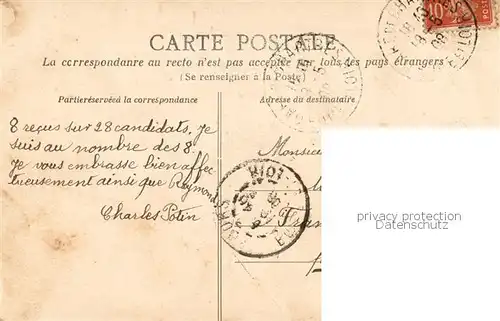 CARTE POSTALE
La correspondanre au recto n'est pas acceptée par tous les pays étrangers
(Se renseigner à la Poste)
Partie réservée à la correspondance
Adresse du destinataire
8 reçus sur 28 candidats. Je
suis au nombre des 8.
Je vous embrasse bien affec
tueusement ainsi que Raymond
Charles Potin
Monsieu
Fran
privacy protection
Datenschutz